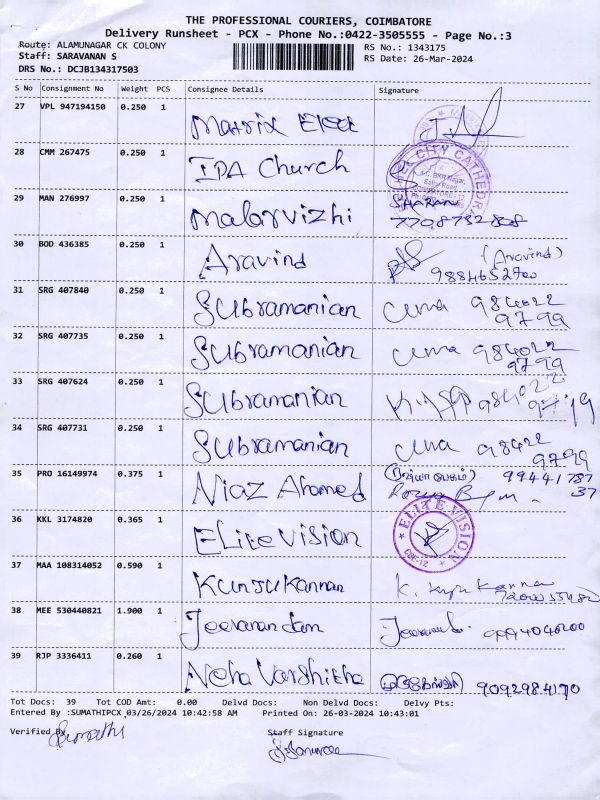 THE PROFESSIONAL COURIERS, COIMBATORE
Delivery Runsheet - PCX - Phone No.:0422-3505555 - Page No.:3
Route: ALAMUNAGAR CK COLONY
RS No.: 1343175
Staff: SARAVANAN S
RS Date: 26-Mar-2024
DRS No.: DCJB134317503
S No Consignment No Weight PCS Consignee Details Signature
27 VPL 947194150 0.250 1 Matrix
28 CMM 267475 0.250 1 IPA Church
CITY CATHEDR
29 MAN 276997 0.250 1 Malarvizhi SHARAN
30 BOD 436385 0.250 1 Aravind (Aravind)
31 SRG 407840 0.250 1 Subramanian uma 984022
9799
32 SRG 407735 0.250 1 Subramanian uma 984022
9799
33 SRG 407624 0.250 1 Subramanian
34 SRG 407731 0.250 1 Subramanian uma 98422
9799
35 PRO 16149974 0.375 1 Niaz Ahamed 99441787
37
36 KKL 3174820 0.365 1 Elite Vision ELITE VISION
CBE-12
37 MAA 108314052 0.590 1 Kunjukannan
38 MEE 530440821 1.900 1 Jeevanandam
39 RJP 3336411 0.260 1 Neha Varshitha 9092984170
Tot Docs: 39 Tot COD Amt: 0.00 Delvd Docs: Non Delvd Docs: Delvy Pts:
Entered By :SUMATHIPCX 03/26/2024 10:42:58 AM Printed On: 26-03-2024 10:43:01
Verified By Sumathi
Staff Signature